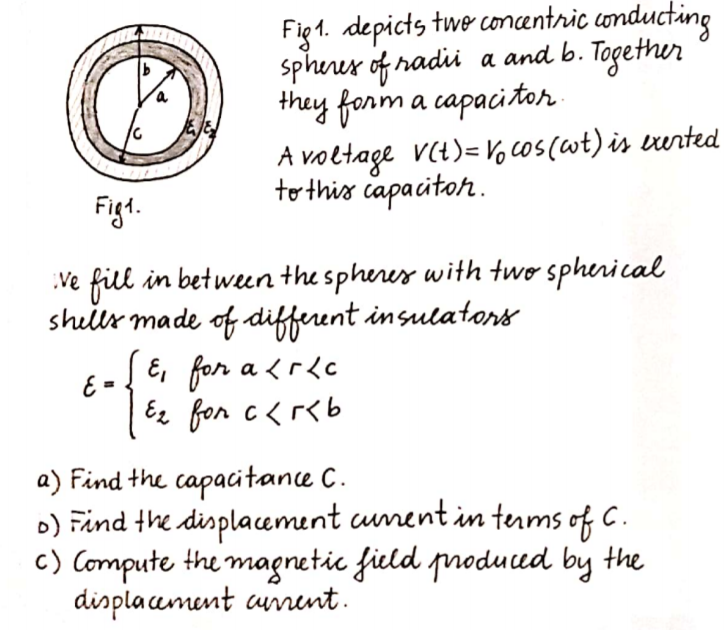 b
a
c
ε₁ ε₂
Fig1.
Fig1. depicts two concentric conducting
spheres of radii a and b. Together
they form a capacitor.
A voltage V(t)=V₀cos(ωt) is exerted
to this capacitor.
We fill in between the spheres with two spherical
shells made of different insulators
ε = { ε₁ for a<r<c
ε₂ for c<r<b
a) Find the capacitance C.
b) Find the displacement current in terms of C.
c) Compute the magnetic field produced by the
displacement current.